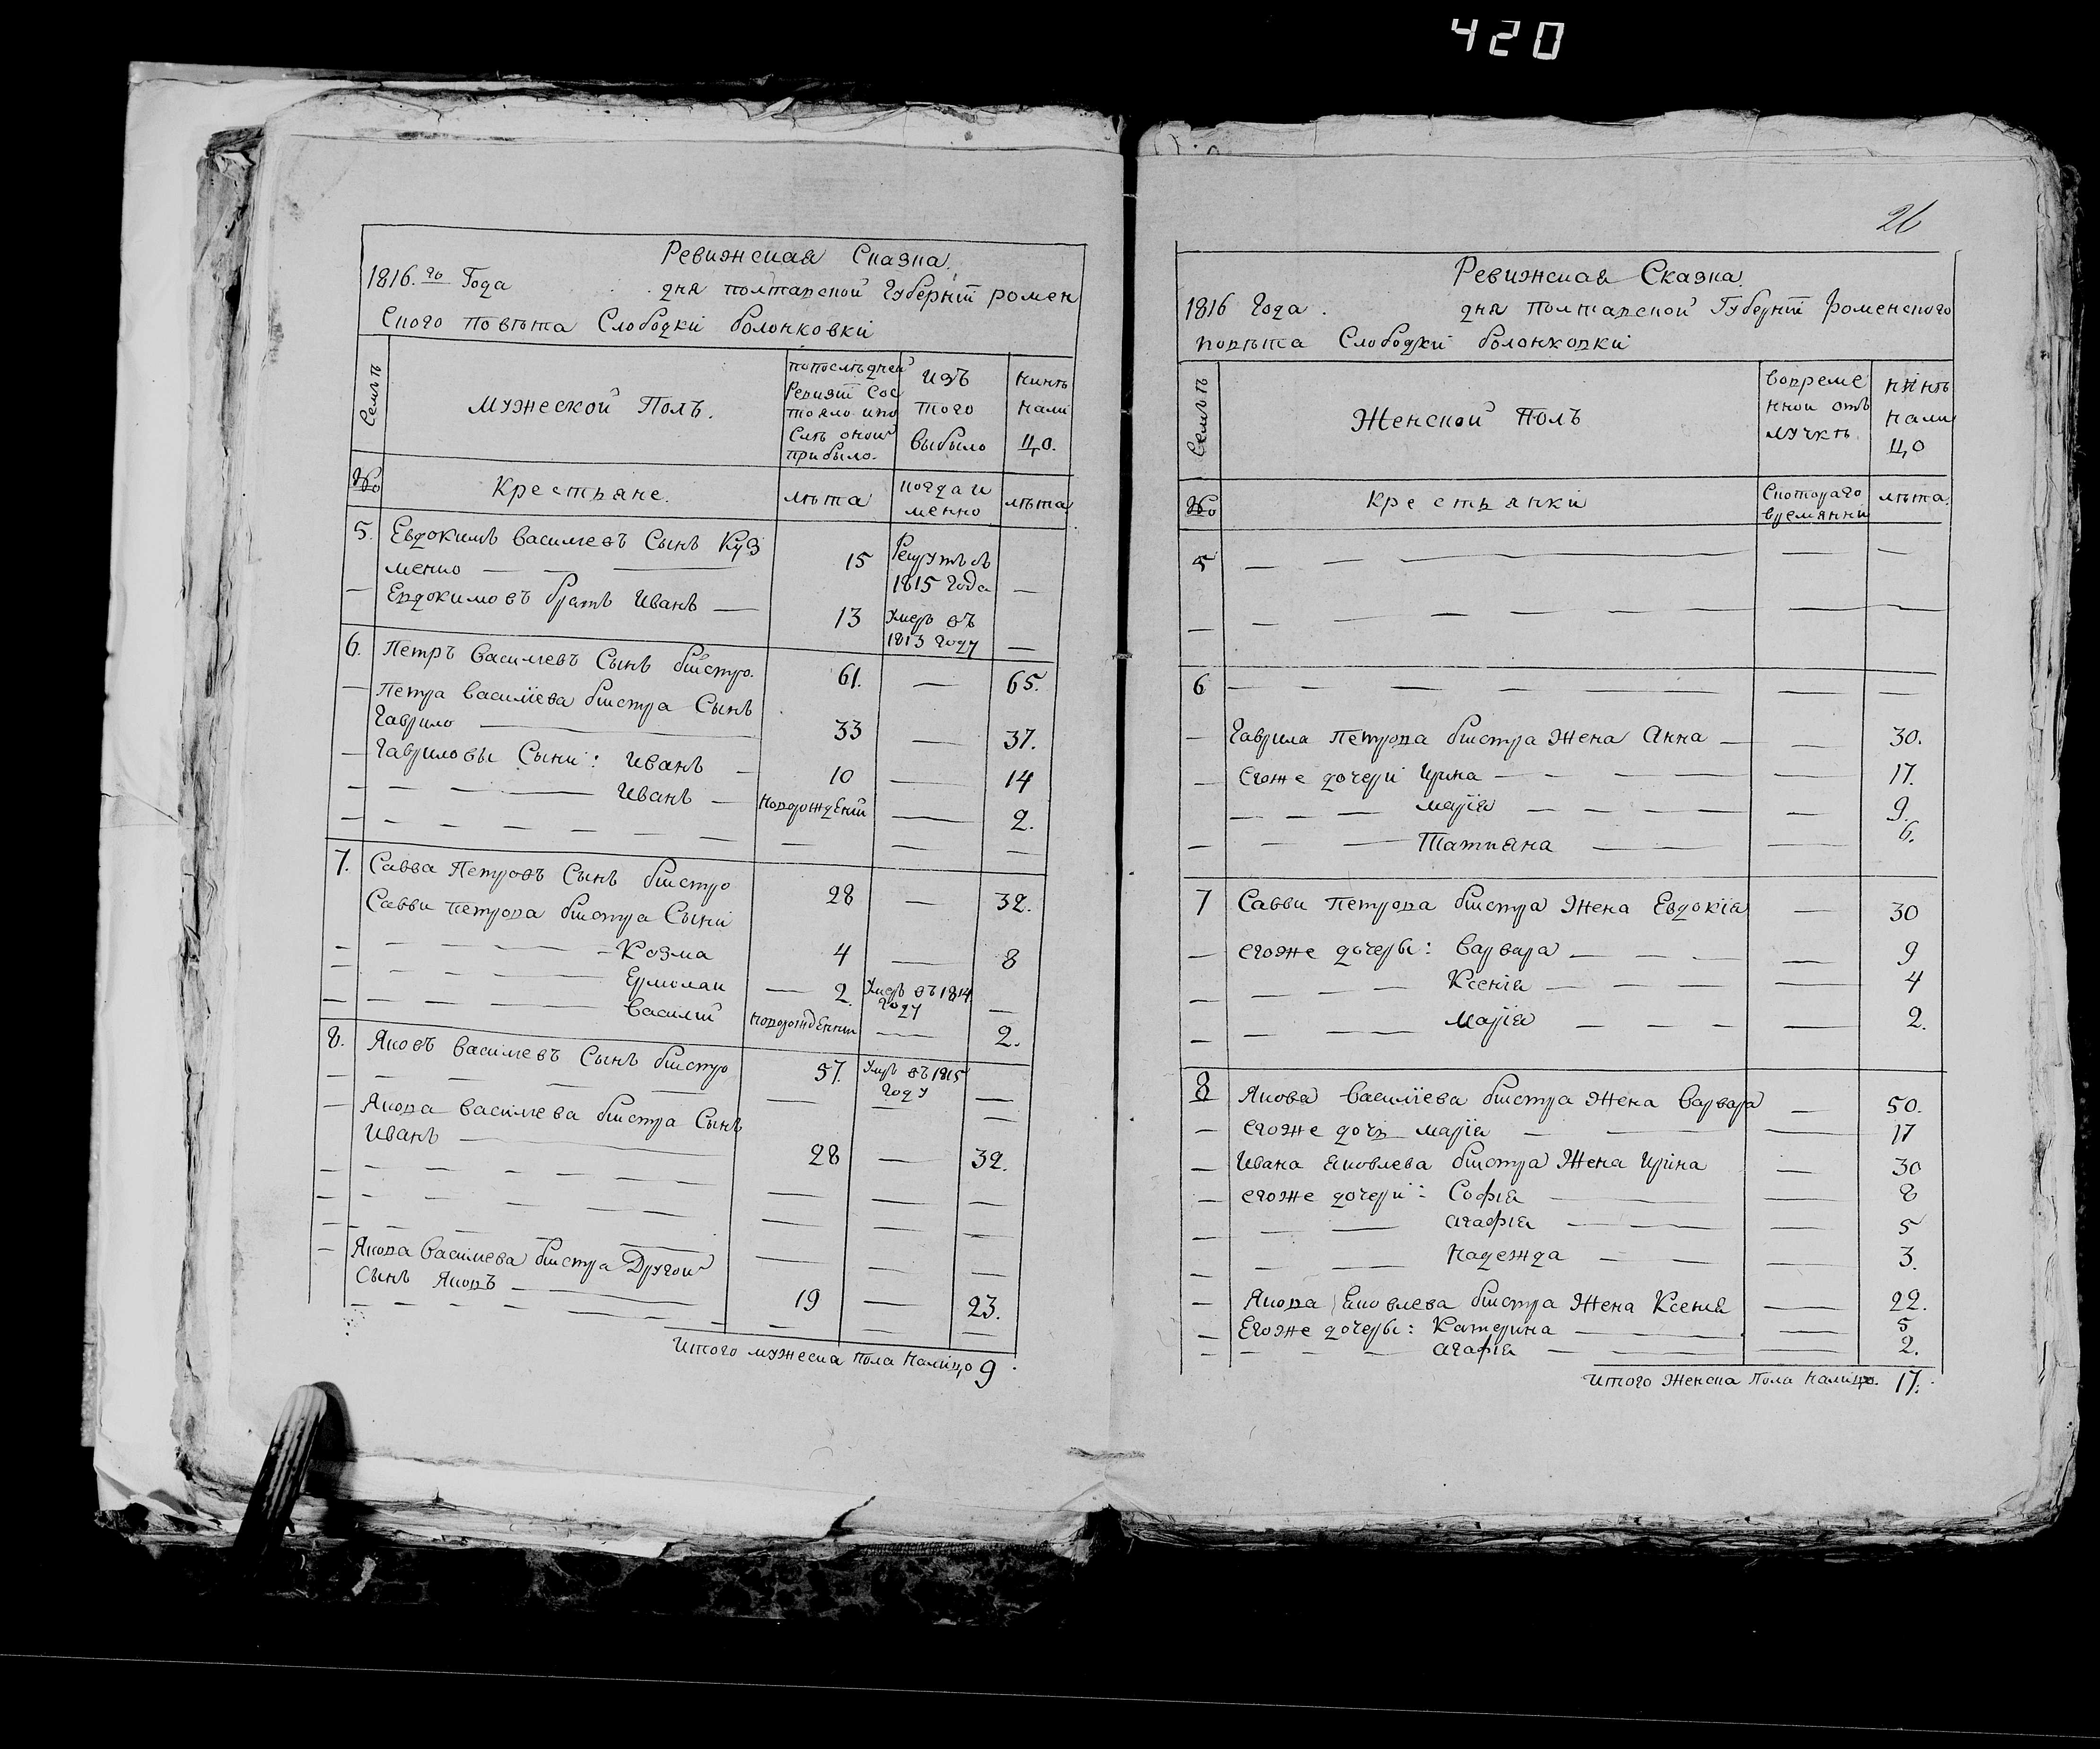 420
Ревижская Сказка.
1816.го Года дня полтавской Губернїи ромен
ского повѣта Слободки болонковки
Семьѣ
Мужеской Полъ.
попослѣдней
Ревизїи сос
тояло ипо
слѣ оной
прибыло.
изъ
того
выбыло
нинѣ
нали
цо.
№
Крестьяне.
лѣта
когда и
менно
лѣта
5. Евдокимъ васильевъ Сынъ Куз
менко — — — 15 Рекрутъ въ
1815 года —
— Евдокимовъ братъ Иванъ — 13 Умеръ въ
1813 году —
6. Петръ васильевъ Сынъ бистро. 61. — 65.
— Петра василїева бистра Сынъ
Гаврило — 33 — 37.
— Гавриловы Сыни: Иванъ — 10 — 14
— — — — Иванъ — новорожденїй — 2.
— — — — — — — — — —
7. Савва Петровъ Сынъ бистро 28 — 32.
Савви петрова бистра Сыни
— — — — Козма 4 — 8
— — — — Ермолаи — 2 Умеръ въ 1814
году —
— — — — василїй новорожденни — 2.
8. Яковъ васильевъ Сынъ бистро 57. Умръ въ 1815
году —
— — — — — — — —
— Якова васильева бистра Сынъ
Иванъ — 28 — 32.
— — — — — — — — —
— — — — — — — — —
— — — — — — — — —
— Якова васильева бистра Другой
Сынъ Яковъ — 19 — 23.
— — — — — — — —
Итого мужеска пола налицо 9.
26
Ревижская Сказка.
1816 Года. дня полтавской Губернїи роменского
повѣта Слободки болонковки
Семьѣ
Женской полъ
вовреме
нной отъ
лучкѣ
нинѣ
нали
цо
№
крестьянки
Скотораго
времянни
лѣта.
5 — — — — —
— — — — — — — —
6 — — — — — — — —
— Гаврила Петрова бистра жена Анна — — 30.
— егоже дочери Ирина — — — — 17.
— — — марїя — — — — 9.
— — — Татияна — — — 6.
7 Савви Петрова бистра Жена Евдокїя — 30
— егоже дочеры: варвара — — — — 9
— — — — Ксенїя — — — — 4
— — — Марїя — — — — 2.
8 Якова василїева бистра жена варвара — 50.
— егоже дочь марїя — — — 17
— Ивана яковлева бистра Жена Ирїна — 30
— егоже дочери: Софїя — — 8
— — — агафїя — — — 5
— — — надежда — — — 3.
— Якова Яковлева бистра Жена Ксенїя — 22.
— Егоже дочеры: Катерина — — 5
— — — — агафїя — — — 2.
Итого Женска пола налицо. 17.